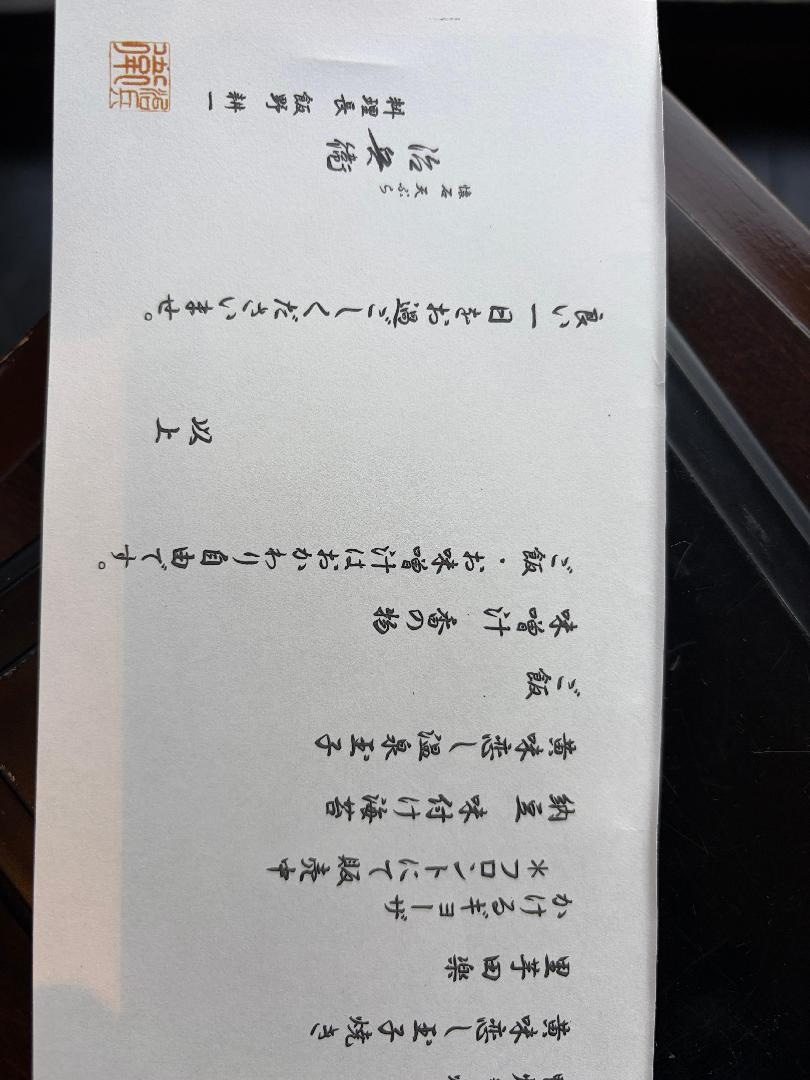 黄味恋し玉子焼き
里芋田楽
かけるギョーザ
*フロントにて販売中
納豆 味付け海苔
黄味恋し温泉玉子
ご飯
味噌汁 香の物
ご飯・お味噌汁はおかわり自由です。
以上
良い一日をお過ごしくださいませ。
懐石天ぷら
治兵衛
料理長 飯野 耕一